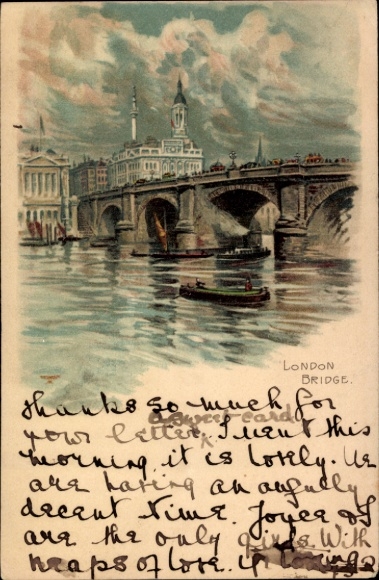 LONDON
BRIDGE.
thanks so much for
a sweet card
your letter, I went this
morning, it is lovely. We
are having an awfully
decent time. Joyce & I
are the only girls. With
heaps of love.